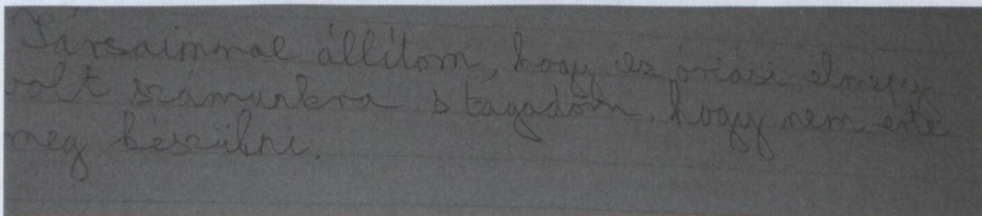 Társaimmal állítom, hogy ez óriási élmény
volt számunkra s tagadom, hogy nem érte
meg készülni.